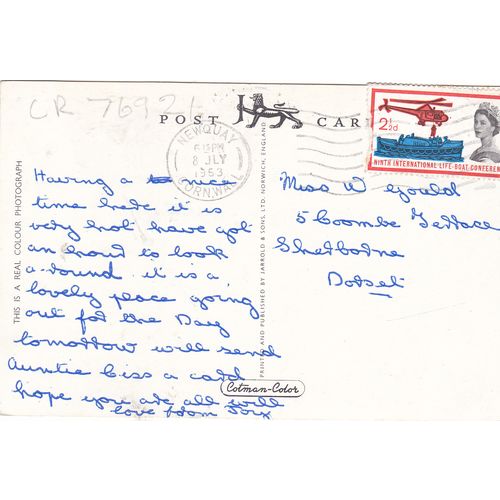 CR 7692
POST CAR
NEWQUAY
PM
8 JLY
1963
CORNWALL
2½d
NINTH INTERNATIONAL LIFE-BOAT CONFERE
THIS IS A REAL COLOUR PHOTOGRAPH
Having a to nice
time here it is
very hot have got
an hour to look
a-round it is a
lovely place going
out for the Day
tomorrow will send
Auntie Ciss a card
hope you are all well
love from
PRINTED AND PUBLISHED BY JARROLD & SONS LTD. NORWICH, ENGLAND
Cotman-Color
Miss W Gould
5 Coombe Terrace
Sherborne
Dorset